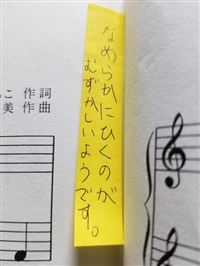 なめらかにひくのが
むずかしいようです。
こ 作 詞
美 作 曲